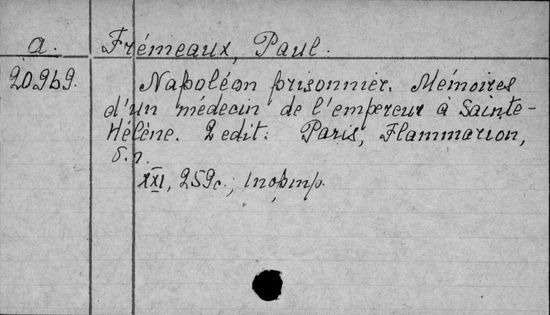 a. Frémeaux, Paul.
20.969. Napoléon prisonnier. Mémoires
d'un médecin de l'empereur à Sainte-
Hélène. 2 edit. Paris, Flammarion,
б.г.
XXI, 259с., 1портр.